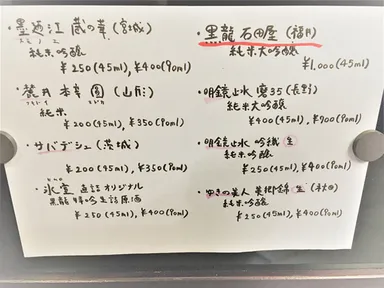 ・墨廼江 蔵の華 (宮城)
スミノエ
純米吟醸
¥250(45ml), ¥400(90ml)
(山形)
純米
¥200(45ml), ¥350(90ml)
・サバデシュ (茨城)
¥200(45ml), ¥350(90ml)
・氷室 直詰オリジナル
黒龍
¥250(45ml), ¥400(90ml)
・黒龍 石田屋 (福井)
純米大吟醸
¥1,000(45ml)
・明鏡止水 磨35(長野)
純米大吟醸
¥400(45ml), ¥700(90ml)
・明鏡止水 吟織 生
純米吟醸
¥250(45ml), ¥400(90ml)
・ゆきの美人 美郷錦 生 (秋田)
純米吟醸
¥250(45ml), ¥400(90ml)